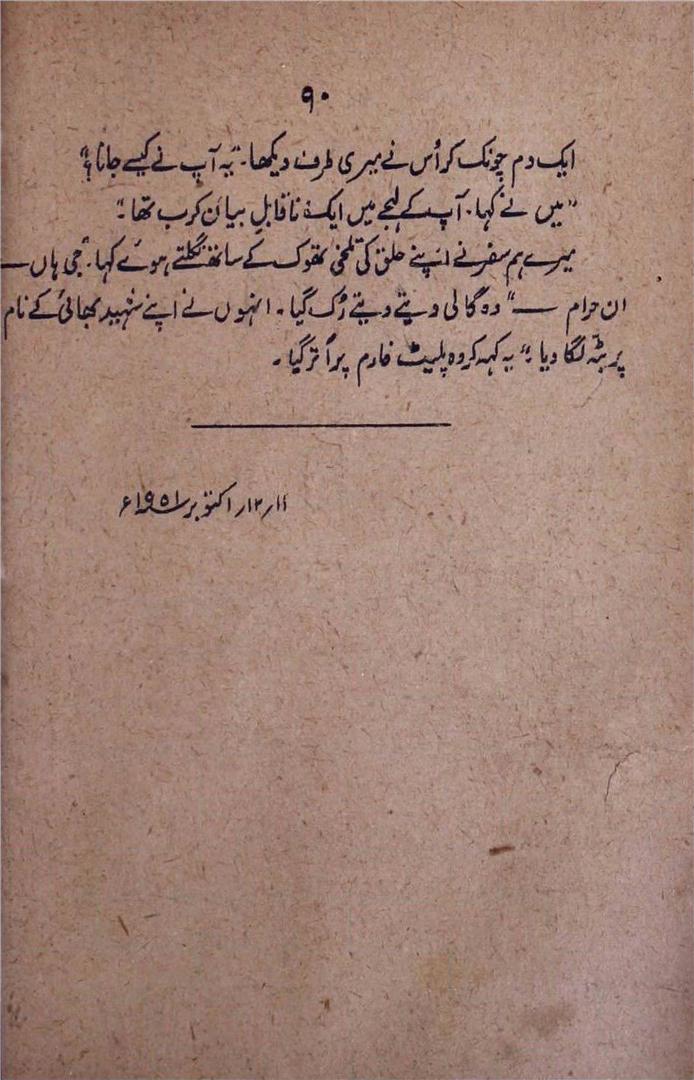 ۹۰
ایک دم چونک کر اُس نے میری طرف دیکھا۔ "یہ آپ نے کیسے جانا؟"
"میں نے کہا۔ آپ کے لہجے میں ایک ناقابلِ بیان کرب تھا۔"
میرے ہم سفر نے اپنے حلق کی تلخی تھوک کے ساتھ نگلتے ہوئے کہا۔ "جی ہاں —
ان حرام —" وہ گالی دیتے دیتے رُک گیا۔ انہوں نے اپنے شہید بھائی کے نام
پر بٹّہ لگا دیا۔" یہ کہہ کر وہ پلیٹ فارم پر اُتر گیا۔
۱۱، ۱۲، اکتوبر ۱۹۵۱ء